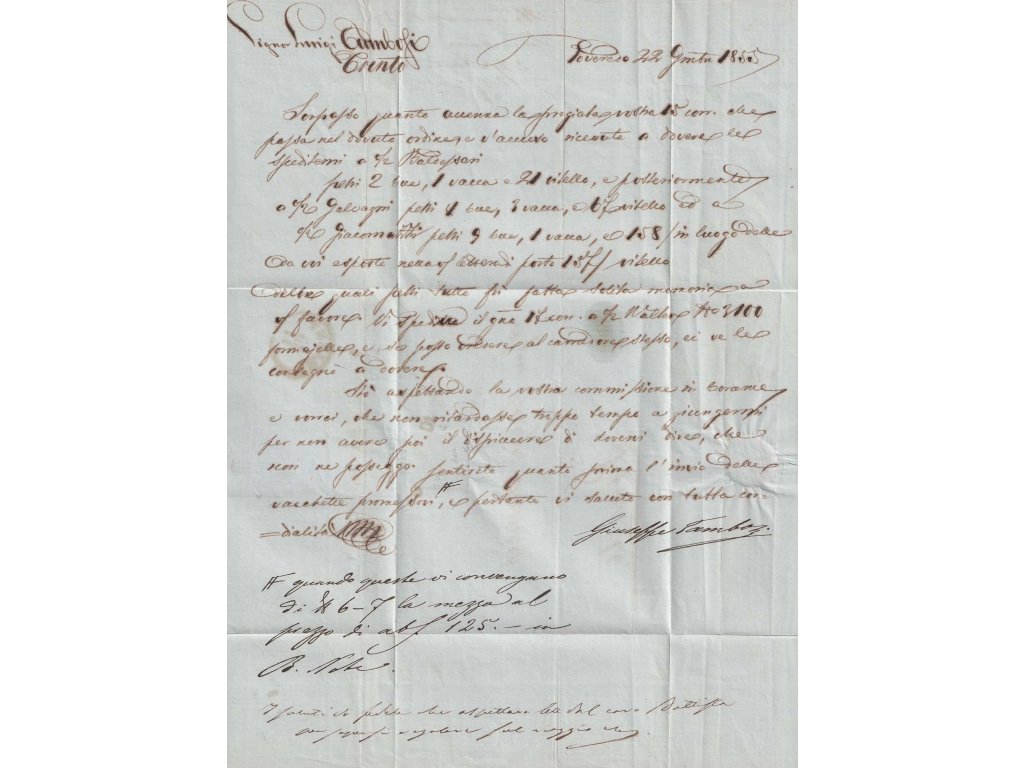 Signor Luigi Tambosi
Trento
Rovereto 22 9mbre 1855
Sorpasso quanto accenna la pregiata vostra 15 corr. che
passa nel dovuto ordine, e v'accuso ricevute a dovere le
speditemi a 1/2 Baldessari
pelli 2 bue, 1 vacca e 21 vitello, e posteriormente
a 1/2 Galvagni pelli 1 bue, 3 vacca, e 67 vitello ed a
1/2 Giacomatti pelli 9 bue, 1 vacca, e 158 / in luogo delle
da voi esposte lettera di porto 157 / vitello
delle quali pelli tutte fu fatta solita memoria a
favore. Vi spedii il 17 corr. a 1/2 3100
formajelle, e se posso credere al conduttore stesso, ei ve le
consegnò a dovere.
Stò aspettando la vostra commissione in corame
e vorrei, che non ritardasse troppo tempo a giungermi
per non avere poi il dispiacere di dovervi dire, che
non ne posseggo. Sentirete quanto prima l'invio delle
vacchette promessovi #, e pertanto vi saluto con tutta cor-
dialità
Giuseppe Tambosi
# quando queste vi convengano
di 6-7 la mezza al
prezzo di 125.- in
B. Note.
che aspettava dal caro Battista
sul viaggio